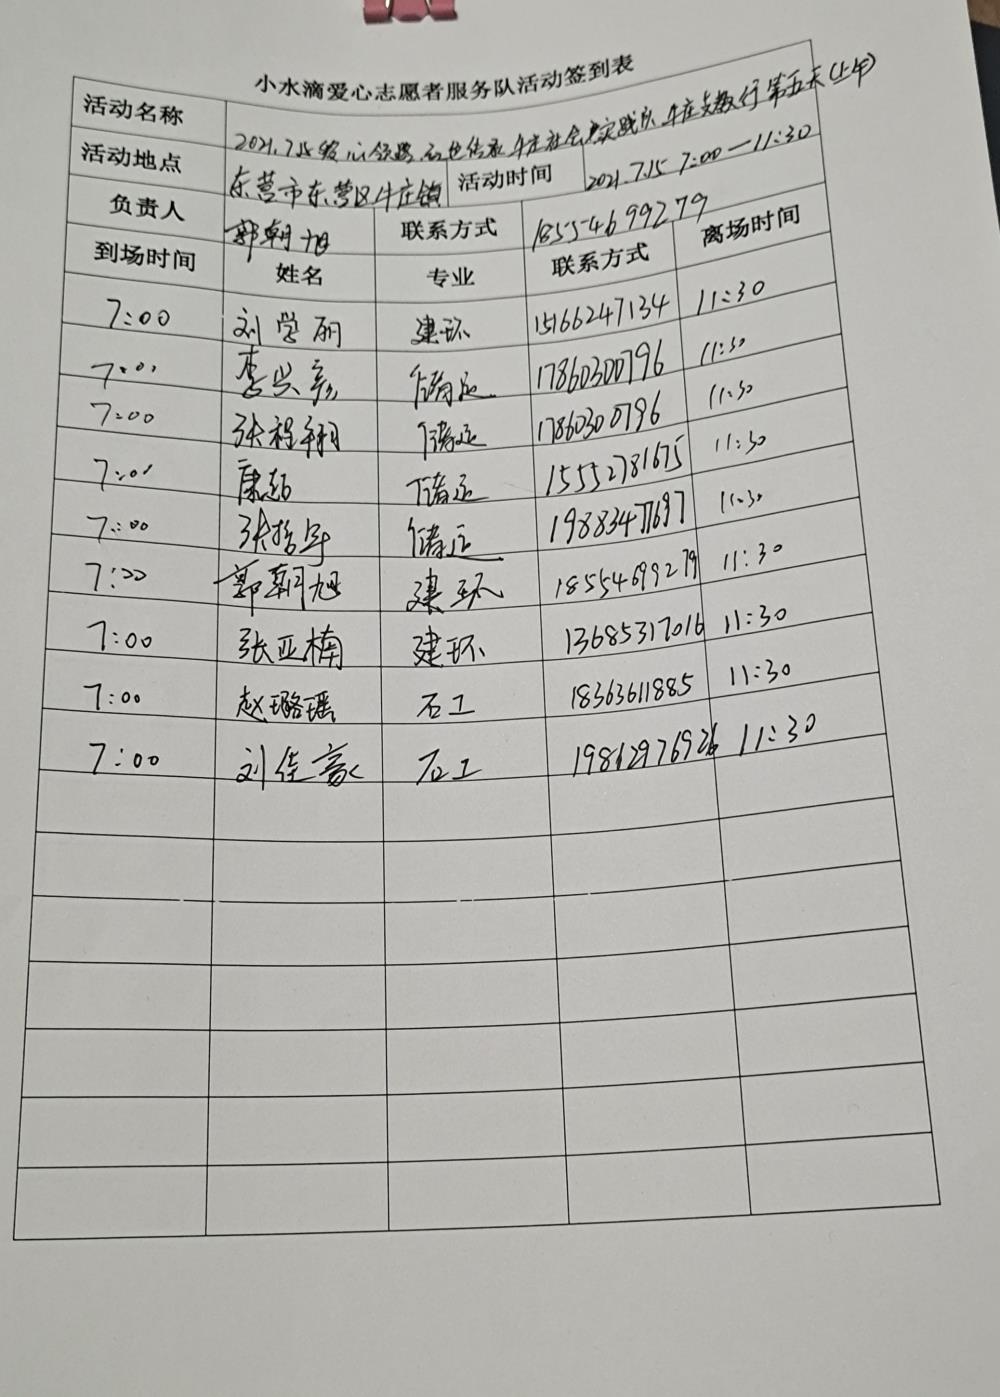 小水滴爱心志愿者服务队活动签到表
活动名称 2021.7.15 爱心领路 石 传承 牛庄社会实践队 牛庄支教行第五天(上午)
活动地点 东营市东营区牛庄镇 活动时间 2021.7.15 7:00—11:30
负责人 郭朝旭 联系方式 18554699279
到场时间 姓名 专业 联系方式 离场时间
7:00 刘学丽 建环 15166247134 11:30
7:00 李兴 储运 17860300796 11:30
7:00 张程翔 储运 17860300796 11:30
7:00 康超 储运 15552781675 11:30
7:00 张哲宇 储运 19883477697 11:30
7:00 郭朝旭 建环 18554699279 11:30
7:00 张亚楠 建环 13685317016 11:30
7:00 赵璐瑶 石工 18363611885 11:30
7:00 刘佳豪 石工 19862976926 11:30